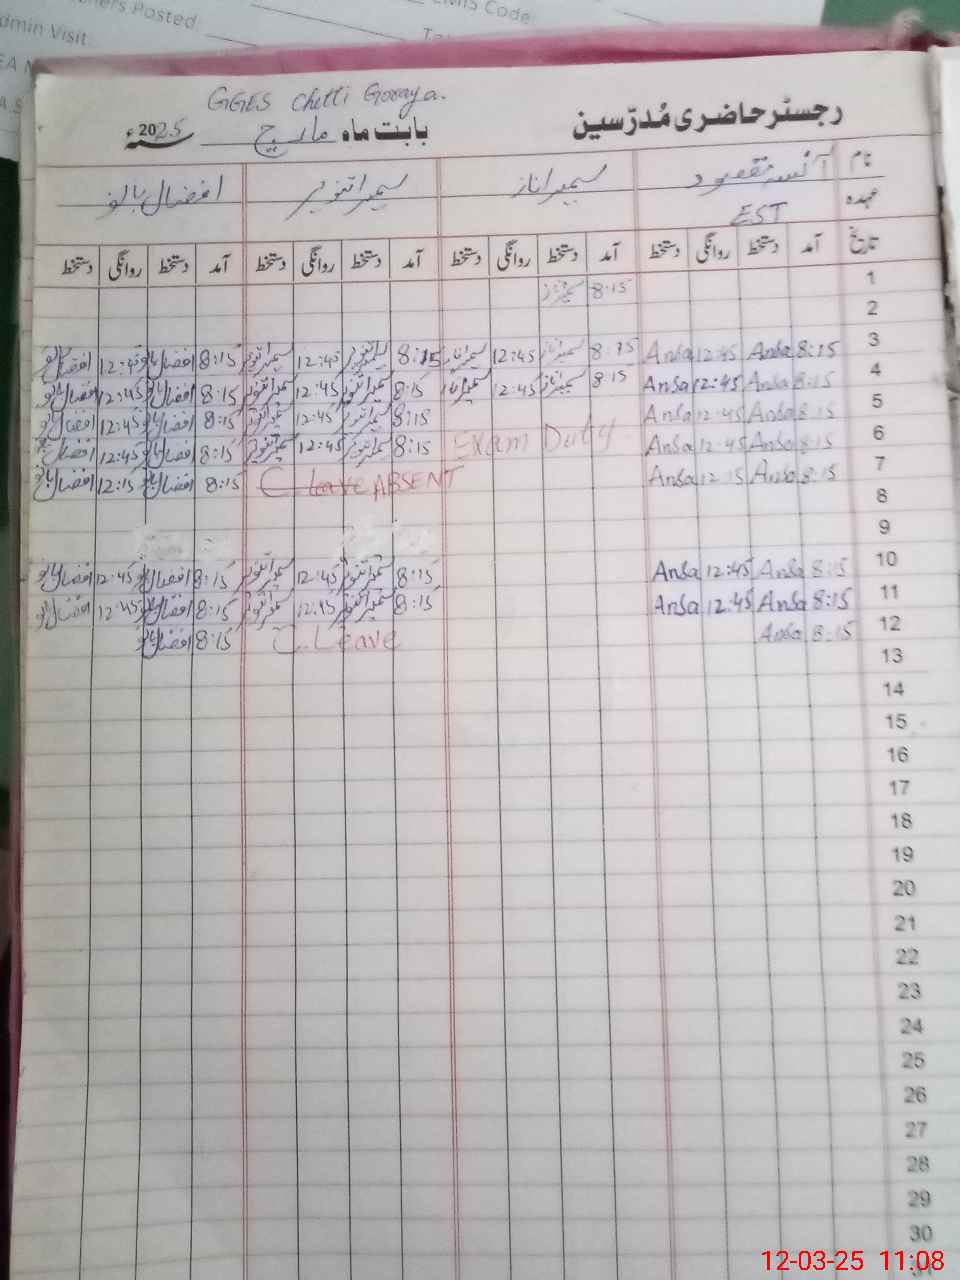 hers Posted
EMIS Code
dmin Visit
GGES Chetti Goraya.
رجسٹر حاضری مُدرّسین بابت ماہ مارچ 2025ء
نام آنسہ مقصود سمیرا ناز سمیرا تنویر افضال بانو
عہدہ EST
تاریخ آمد دستخط روانگی دستخط آمد دستخط روانگی دستخط آمد دستخط روانگی دستخط آمد دستخط روانگی دستخط
1 8:15 سمیرا ناز
2
3 8:15 Ansa 12:45 Ansa 8:15 سمیرا ناز 12:45 سمیرا ناز 8:15 سمیرا تنویر 12:45 سمیرا تنویر 8:15 افضال بانو 12:45 افضال بانو
4 8:15 Ansa 12:45 Ansa 8:15 سمیرا ناز 12:45 سمیرا ناز 8:15 سمیرا تنویر 12:45 سمیرا تنویر 8:15 افضال بانو 12:45 افضال بانو
5 8:15 Ansa 12:45 Ansa 8:15 سمیرا تنویر 12:45 سمیرا تنویر 8:15 افضال بانو 12:45 افضال بانو
6 8:15 Ansa 12:45 Ansa Exam Duty 8:15 سمیرا تنویر 12:45 سمیرا تنویر 8:15 افضال بانو 12:45 افضال بانو
7 8:15 Ansa 12:15 Ansa C leave ABSENT 8:15 افضال بانو 12:15 افضال بانو
8
9
10 8:15 Ansa 12:45 Ansa 8:15 سمیرا تنویر 12:45 سمیرا تنویر 8:15 افضال بانو 12:45 افضال بانو
11 8:15 Ansa 12:45 Ansa 8:15 سمیرا تنویر 12:45 سمیرا تنویر 8:15 افضال بانو 12:45 افضال بانو
12 8:15 Ansa C. Leave 8:15 افضال بانو
13
14
15
16
17
18
19
20
21
22
23
24
25
26
27
28
29
30
31
12-03-25 11:08